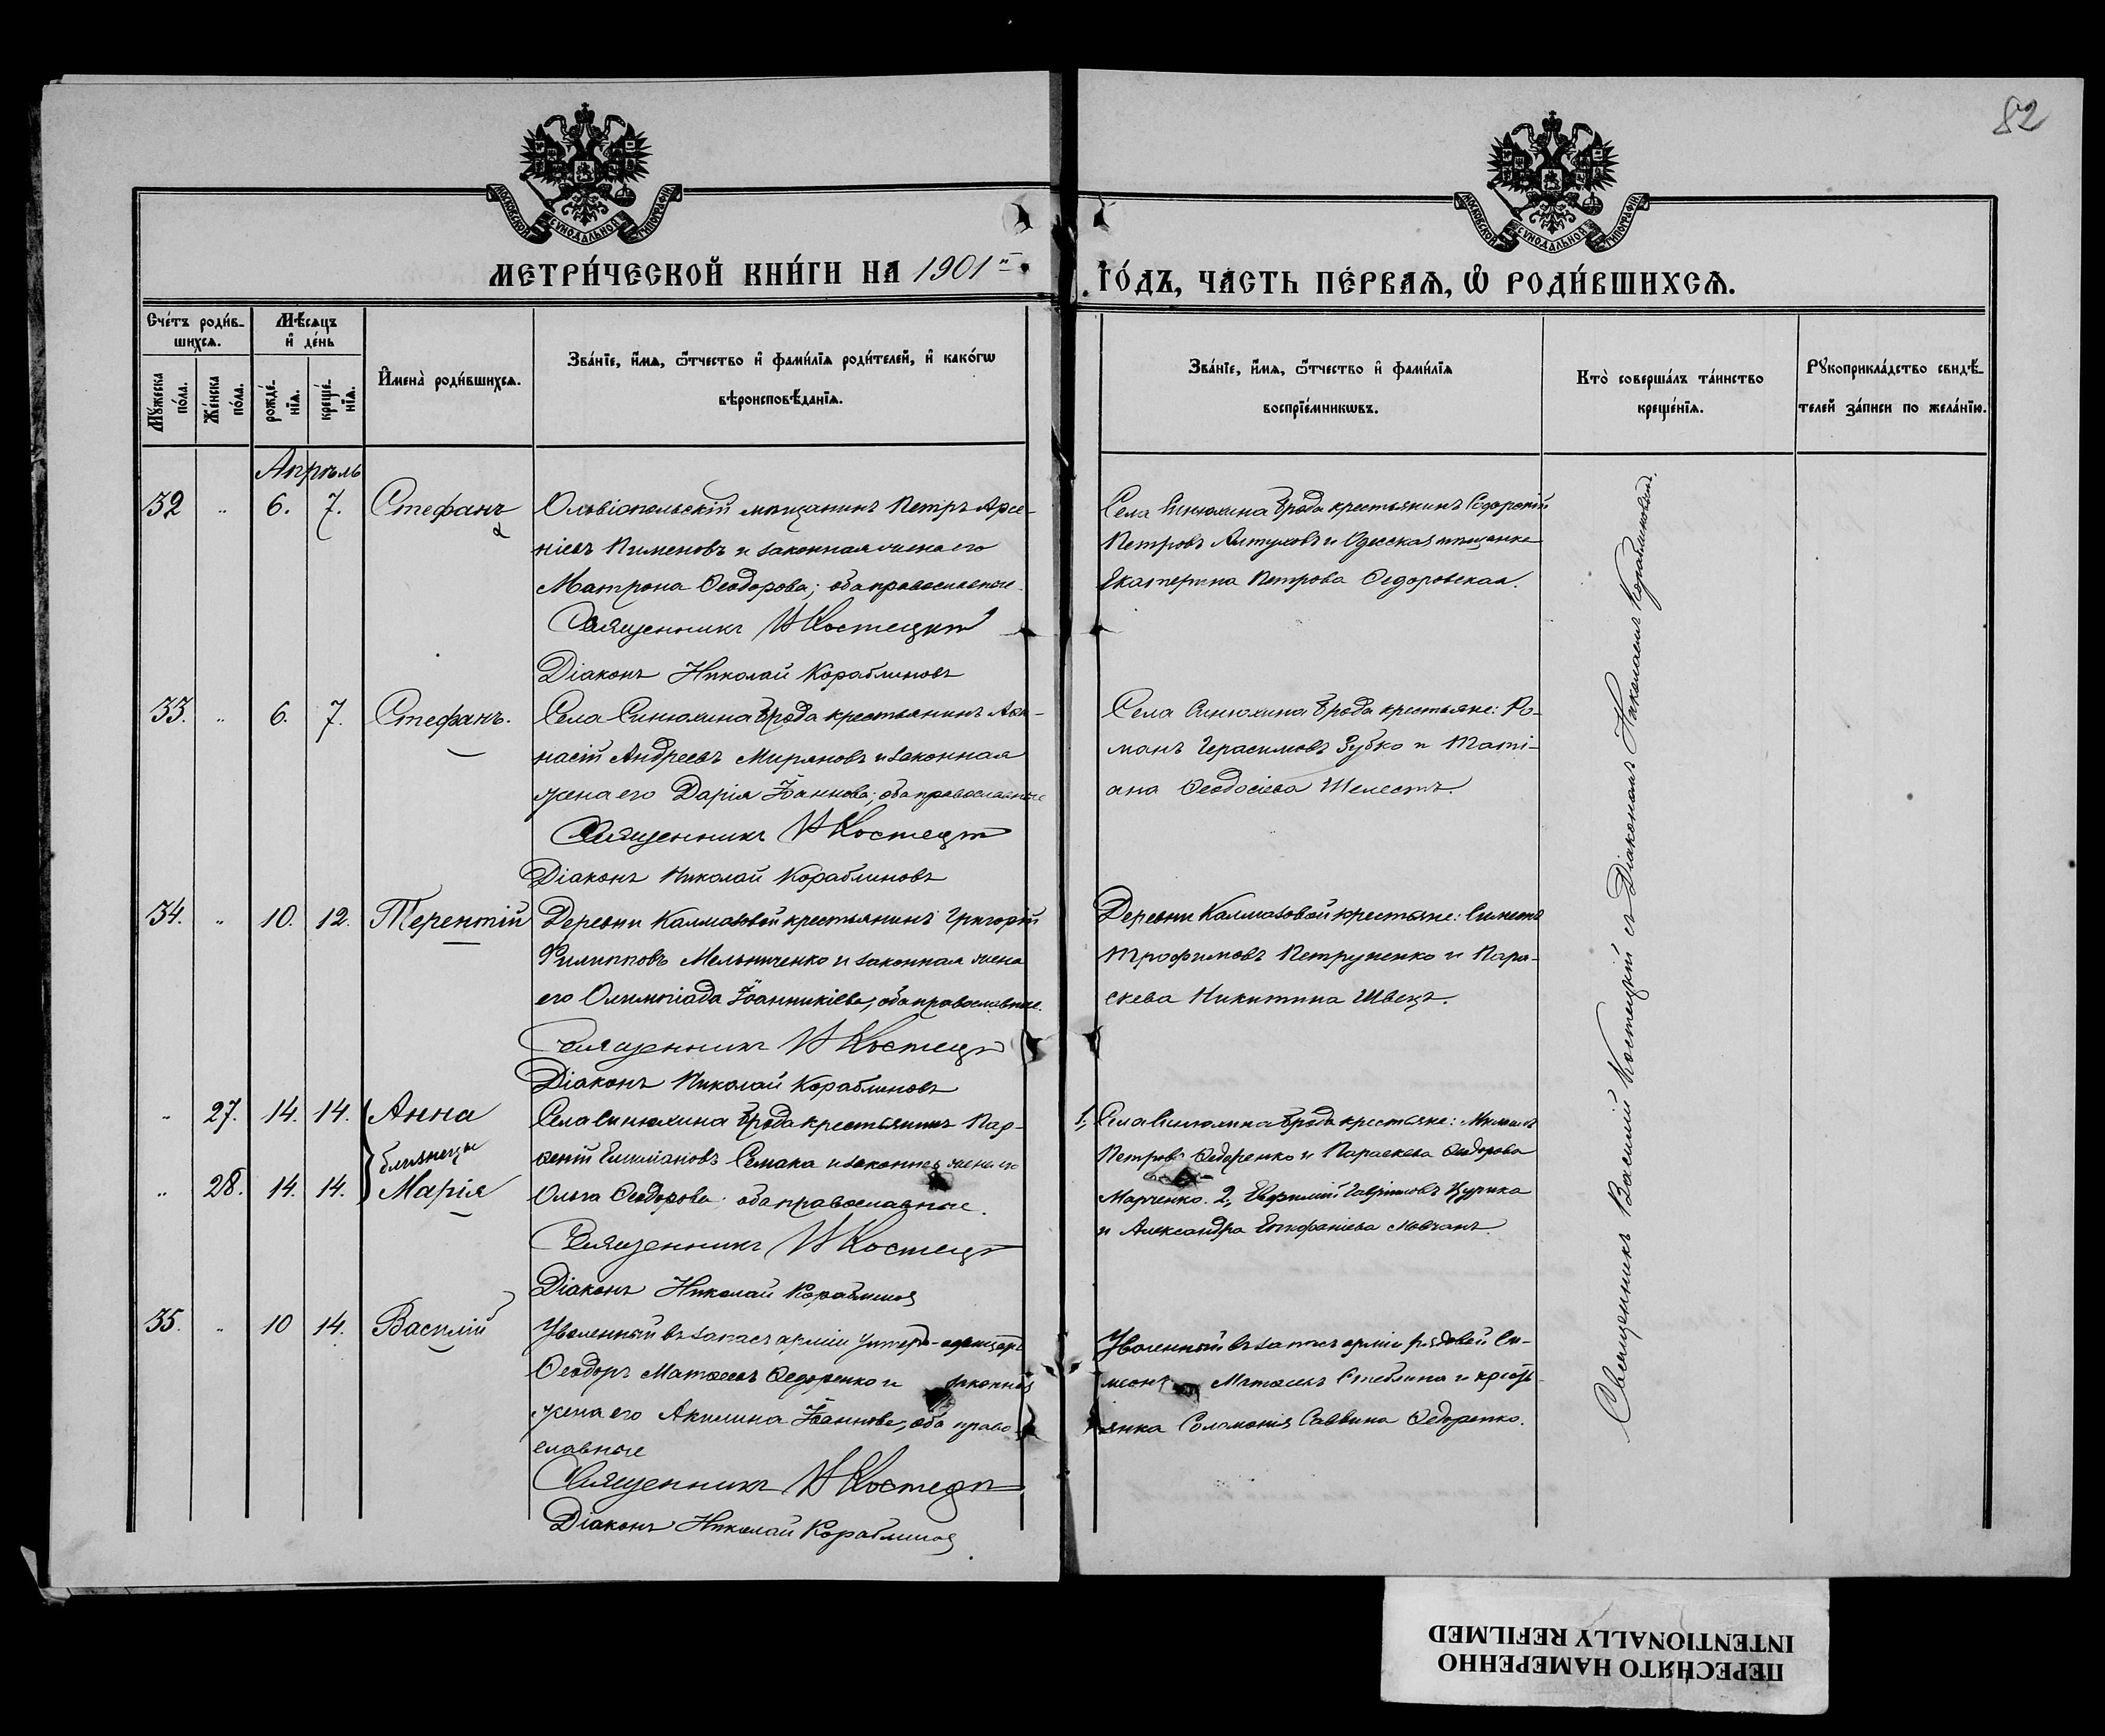 82
МОСКОВСКОЙ СѴНОДАЛЬНОЙ ТИПОГРАФІИ
МОСКОВСКОЙ СѴНОДАЛЬНОЙ ТИПОГРАФІИ
МЕТРИ́ЧЕСКОЙ КНИ́ГИ НА 1901й
ГО́ДЪ, ЧА́СТЬ ПЕ́РВАѦ, Ѡ҆ РОДИ́ВШИХСѦ.
Сче́тъ роди́в-
шихсѧ.
Мѣ́сѧцъ
и҆ де́нь
Мꙋ́жеска
по́ла.
Же́нска
по́ла.
рожде́-
нїѧ.
креще́-
нїѧ.
И҆мена̀ роди́вшихсѧ.
Зва́нїе, и҆́мѧ, ѻ҆́тчество и҆ фами́лїѧ роди́телей, и҆ како́гѡ
вѣроисповѣ́данїѧ.
Зва́нїе, и҆́мѧ, ѻ҆́тчество и҆ фами́лїѧ
воспрїе́мникѡвъ.
Кто̀ соверша́лъ та́инство
креще́нїѧ.
Рꙋкоприкла́дство свидѣ́-
телей за́писи по жела́нїю.
Апрѣль
32 " 6. 7. Стефанъ
Ольвіопольскій мѣщанинъ Петръ Арсе-
ніевъ Пименовъ и законная жена его
Матрона Ѳеодорова; оба православные.
Священникъ В Костецкій
Діаконъ Николай Кораблиновъ
Села Синюхина Брода крестьянинъ
Петровъ Алтуховъ и Одесская мѣщанка
Екатерина Петрова Федоровская.
33. " 6. 7. Стефанъ.
Села Синюхина Брода крестьянинъ Аѳа-
насій Андреевъ Миряновъ и законная
жена его Дарія Іоаннова; оба православные
Священникъ В Костецкій
Діаконъ Николай Кораблиновъ
Села Синюхина Брода крестьяне: Ро-
манъ Герасимовъ Зубко и Таті-
ана Ѳеодосіева Шелестъ.
34. " 10. 12. Терентій
Деревни Калмазовой крестьянинъ Григорій
Филипповъ Мельниченко и законная жена
его Олимпіада Іоанникіева, оба православные.
Священникъ В Костецкій
Діаконъ Николай Кораблиновъ
Деревни Калмазовой крестьяне:
Трофимовъ Петрупенко и Пара-
скева Никитина Швецъ.
" 27. 14. 14. Анна
близнецы
" 28. 14. 14. Марія
Села Синюхина Брода крестьянинъ Пар-
ѳеній Емиліановъ Семака и законная жена его
Ольга Ѳеодорова; оба православные.
Священникъ В Костецкій
Діаконъ Николай Кораблиновъ
1, Села Синюхина Брода крестьяне: Михаилъ
Петровъ Федоренко и Параскева Ѳеодорова
Марченко. 2, Евфимій Гавріиловъ Цурика
и Александра Епифаніева Мовчанъ.
35. " 10 14. Василій
Уволенный въ запасъ арміи унтеръ-офицеръ
Ѳеодоръ Матѳеевъ Федоренко и законная
жена его Акилина Іоаннова, оба право-
славные
Священникъ В Костецкій
Діаконъ Николай Кораблиновъ
Уволенный въ запасъ арміи рядовой Си-
меонъ Матѳеевъ Стеблина и кресть-
янка Соломонія Саввина Федоренко.
Священникъ Василій Костецкій съ Діакономъ Николаемъ Кораблиновымъ.
ПЕРЕСНЯТО НАМЕРЕННО
INTENTIONALLY REFILMED